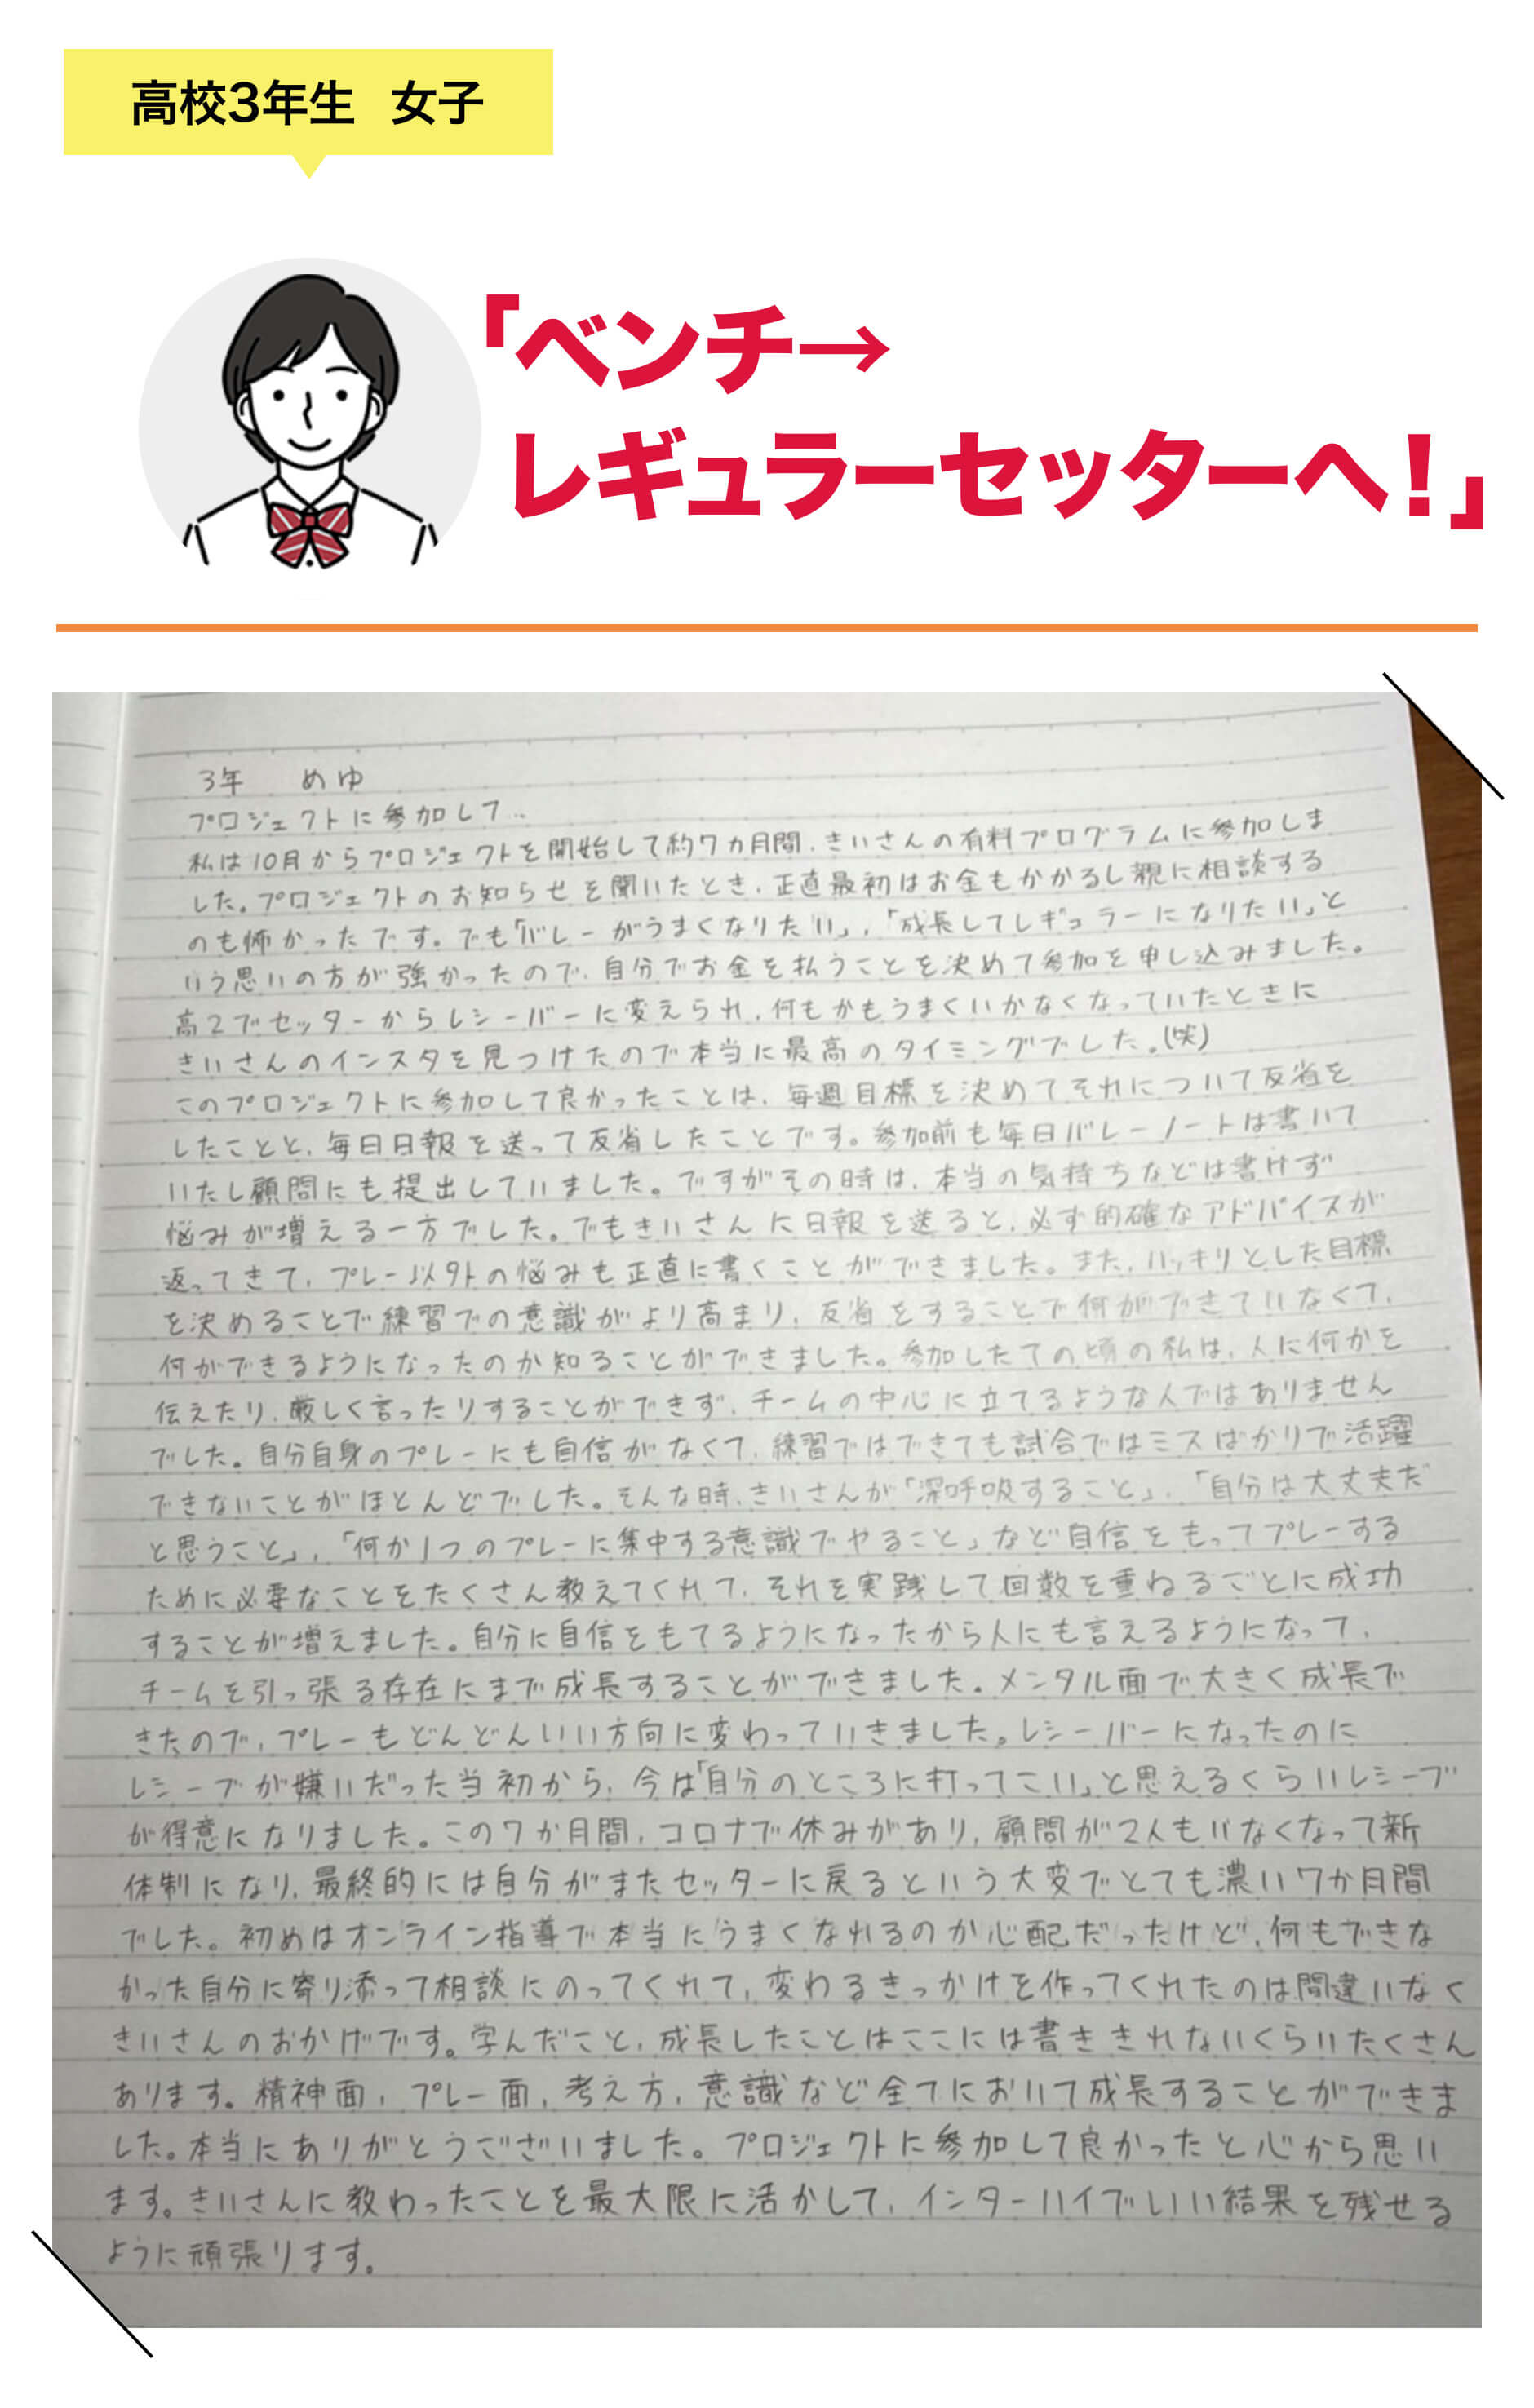 高校3年生 女子
「ベンチ→
レギュラーセッターへ！」
3年 めゆ
プロジェクトに参加して…
私は10月からプロジェクトを開始して約7カ月間、きいさんの有料プログラムに参加しま
した。プロジェクトのお知らせを聞いたとき、正直最初はお金もかかるし親に相談する
のも怖かったです。でも「バレーがうまくなりたい」、「成長してレギュラーになりたい」と
いう思いの方が強かったので、自分でお金を払うことを決めて参加を申し込みました。
高2でセッターからレシーバーに変えられ、何もかもうまくいかなくなっていたときに
きいさんのインスタを見つけたので本当に最高のタイミングでした。(笑)
このプロジェクトに参加して良かったことは、毎週目標を決めてそれについて反省を
したことと、毎日日報を送って反省したことです。参加前も毎日バレーノートは書いて
いたし顧問にも提出していました。ですがその時は、本当の気持ちなどは書けず
悩みが増える一方でした。でもきいさんに日報を送ると、必ず的確なアドバイスが
返ってきて、プレー以外の悩みも正直に書くことができました。また、ハッキリとした目標
を決めることで練習での意識がより高まり、反省をすることで何ができていなくて、
何ができるようになったのか知ることができました。参加したての頃の私は、人に何かを
伝えたり、厳しく言ったりすることができず、チームの中心に立てるような人ではありません
でした。自分自身のプレーにも自信がなくて、練習ではできても試合ではミスばかりで活躍
できないことがほとんどでした。そんな時、きいさんが「深呼吸すること」、「自分は大丈夫だ
と思うこと」、「何か1つのプレーに集中する意識でやること」など自信をもってプレーする
ために必要なことをたくさん教えてくれて、それを実践して回数を重ねるごとに成功
することが増えました。自分に自信をもてるようになったから人にも言えるようになって、
チームを引っ張る存在にまで成長することができました。メンタル面で大きく成長で
きたので、プレーもどんどんいい方向に変わっていきました。レシーバーになったのに
レシーブが嫌いだった当初から、今は「自分のところに打ってこい」と思えるくらいレシーブ
が得意になりました。この7か月間、コロナで休みがあり、顧問が2人もいなくなって新
体制になり、最終的には自分がまたセッターに戻るという大変でとても濃い7か月間
でした。初めはオンライン指導で本当にうまくなれるのか心配だったけど、何もできな
かった自分に寄り添って相談にのってくれて、変わるきっかけを作ってくれたのは間違いなく
きいさんのおかげです。学んだこと、成長したことはここには書ききれないくらいたくさん
あります。精神面、プレー面、考え方、意識など全てにおいて成長することができま
した。本当にありがとうございました。プロジェクトに参加して良かったと心から思い
ます。きいさんに教わったことを最大限に活かして、インターハイでいい結果を残せる
ように頑張ります。